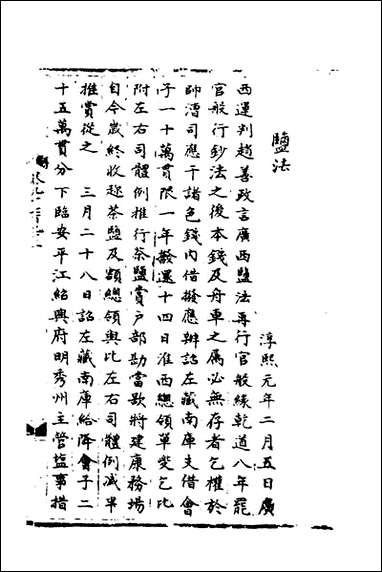 鹽法
淳熙元年二月五日廣
西運判趙善政言廣西鹽法再行官般緣乾道八年罷
官般行鈔法之後本錢及舟車之屬必無存者乞權於
帥漕司應干諸色錢內借撥應辦詔左藏南庫支借會
子一十萬貫限一年撥還十四日淮西總領單夔乞比
附左右司體例推行茶鹽賞戶部勘當欲將建康務場
自今歲終收趂茶鹽及額總領與比左右司體例減半
推賞從之 三月二十八日詔左藏南庫給降會子二
十五萬貫分下臨安平江紹興府明秀州主管鹽事措